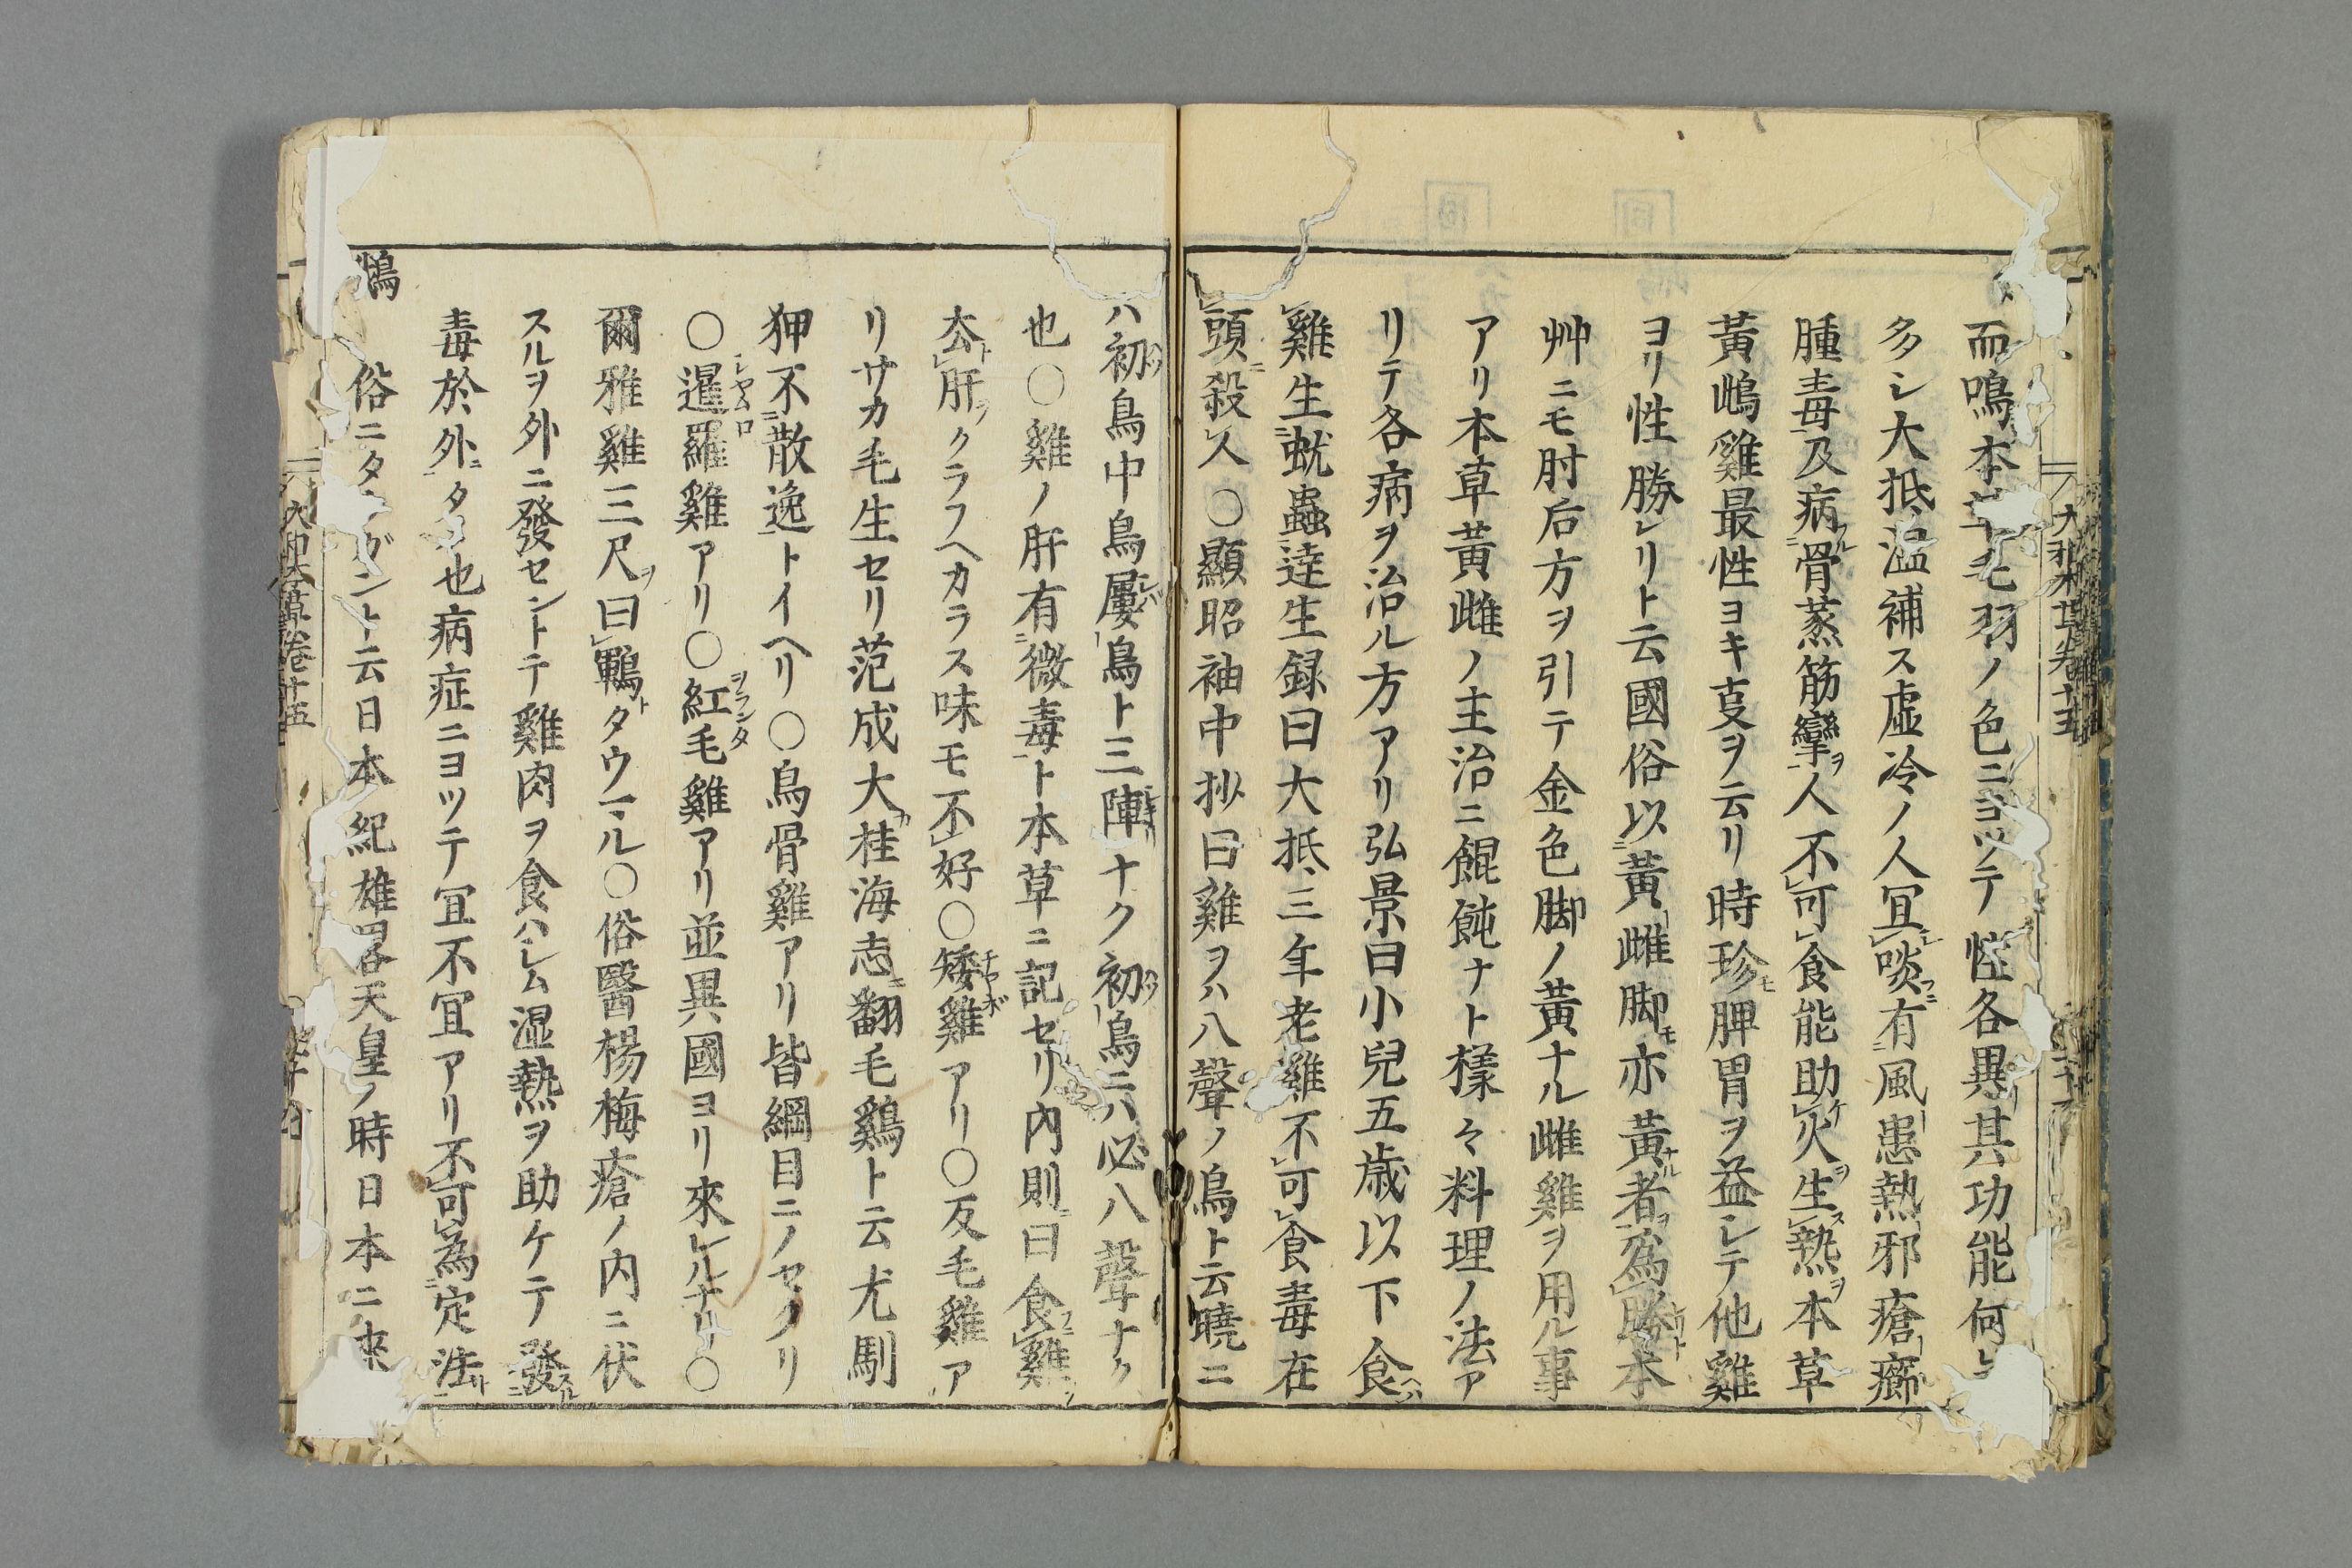 而鳴本草毛羽ノ色ニヨツテ性各異其功能何レ
多シ大抵温補ス虚冷ノ人冝啖有風患熱邪瘡癤
腫毒及病骨蒸筋攣人不可食能助火生熱本草
黃鴙雞最性ヨキ㕝ヲ云リ時珍脾胃ヲ益シテ他雞
ヨリ性勝レリト云國俗以黃雌脚亦黃者為勝本
艸ニモ肘后方ヲ引テ金色脚ノ黃ナル雌雞ヲ用ル事
アリ本草黃雌ノ主治ニ餛飩ナト樣々料理ノ法ア
リテ各病ヲ治ル方アリ弘景曰小兒五歳以下食
雞生蚘蟲達生録曰大抵三年老雞不可食毒在
頭殺人〇顯昭袖中抄曰雞ヲハ八聲ノ鳥ト云曉ニ
ハ初鳥中鳥屢鳥ト三陣ナク初鳥ニハ必八聲ナク
也〇雞ノ肝有微毒ト本草ニ記セリ內則曰食雞
厺肝クラフヘカラス味モ不好〇矮雞アリ〇反毛雞ア
リサカ毛生セリ范成大桂海志翻毛鷄ト云尤馴
狎不散逸トイヘリ〇烏骨雞アリ皆綱目ニノセタリ
〇暹羅雞アリ〇紅毛雞アリ並異國ヨリ來レルナリ〇
爾雅雞三尺曰鶤タウマル〇俗醫楊梅瘡ノ内ニ伏
スルヲ外ニ發セントテ雞肉ヲ食ハシム湿熱ヲ助ケテ發
毒於外タ也病症ニヨツテ冝不冝アリ不可為定法
俗ニタガント云日本紀雄畧天皇ノ時日本ニ來
大和本草卷十五